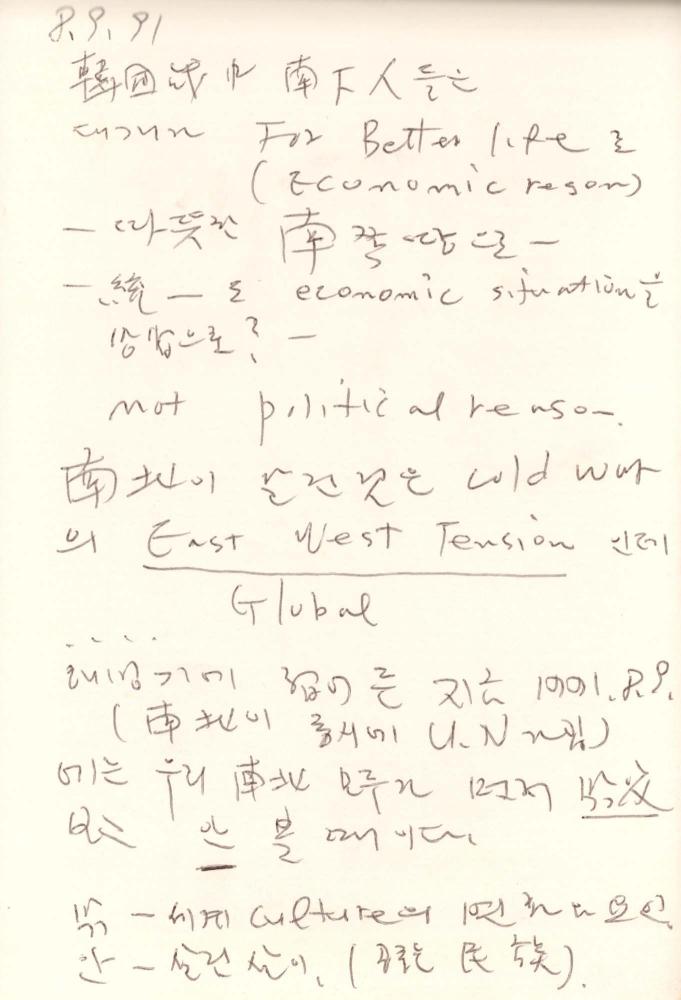 8.9.91
韓國 南下人들은
대개가 For Better life 로
(Economic reason)
— 따뜻한 南쪽 땅으로 —
— 統一도 economic situation을
으로? —
not political reason.
南北이 갈린것은 cold war
의 East West Tension 인데
Global
. . . .
해빙기에 접어든 지금 1991.8.9.
(南北이 동시에 U.N 가입)
에는 우리 南北 모두가 먼저 밖
안 볼 때이다.
밖 — 세계 culture의 요인
안 — 살던 살이. ( 民族).